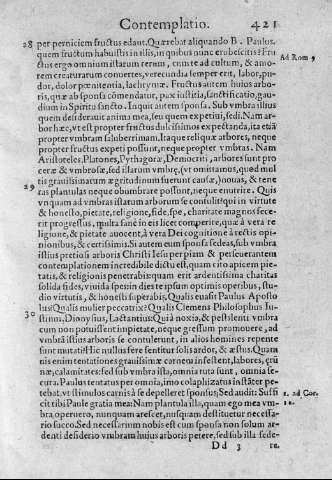 Contemplatio. 421
28 per perniciem fructus edant. Quærebat aliquando B. Paulus,
quem fructum habuistis in illis, in quibus nunc erubescitis? Fru
Ad Rom 9
ctus ergo omnium istarum rerum, cum te ad cultum, & amo-
rem creaturarum conuertes, verecundia semper erit, labor, pu-
dor, dolor pœnitentia, lachrymæ. Fructus autem huius arbo-
ris, quæ ab sponsa commendatur, pax iustitia, sanctificatio, gau
dium in Spiritu sancto. Inquit autem sponsa. Sub vmbra illius
quem desideraui anima mea, seu quem expetiui, sedi. Nam ar
bor hæc, vt est propter fructus dulcissimos expectanda, ita etiã
propter vmbram saluberrimam, Itaque reliquæ arbores, neque
propter fructus expeti possunt, neque propter vmbras. Nam
Aristoteles, Platones, Pythagoræ, Democriti, arbores sunt pro
ceræ & vmbrosæ, sed istarum vmbræ, (vt omittamus, quod mul
tis grauissimarum ægritudinum fuerunt causæ,) nouas, & tene
ras plantulas neque obumbrare possunt, neque enutrire. Quis
29
vnquam ab vmbris istarum arborum se consulit qui in virtute
& honesto, pietate, religione, fide, spe, charitate magnos fece
rit progressus, multa sanè in eis licet comperire, quæ à vera re
ligione, & pietate auocent, à vera Dei cognitione à rectis opi-
nionibus, & certissimis. Si autem cum sponsa sedeas, sub vmbra
illius pretiosi arboris Christi Iesu per piam & perseuerantem
contemplationem incredibile dictu est, quam cito apicem pie-
tatis, & religionis penetrabis: quam erit ardentissima charitas
solida fides, viuida spes in dies te ipsum optimis operibus, stu-
dio virtutis, & honesti superabis. Qualis euasit Paulus Aposto
lus? Qualis mulier peccatrix? Qualis Clemens Philosophus Iu-
30
stinus, Dionysius, Lactantius? Quia noxia, & pestilenti vmbra
cum non potuissent impietate, neque gressum promouere, ad
vmbra istius arboris se contulerunt, in alios homines repente
sunt mutati? Hic nullus fere sentitur solis ardor, & æstus. Quam
uis enim tentationes grauissimæ carnem infestent, labores, crú
næ, calamitates: sed sub vmbra ista, omnia tuta sunt, omnia se-
cura. Paulus tentatus per omnia, imo colaphizatus instãter pe
tebat, vt stimulos carnis à se depelleret sponsus; Sed audit: Suffi
2. ad Cor.
cit tibi Paule gratia mea: Nam plantula illa, quam ego mea vm-
12.
bra, operuero, nunquam arescet, nusquam destituetur necessa-
rio succo. Sed necessarium nobis est cum sponsa non solum ar-
denti desiderio vmbram huius arboris petere, sed sub illa sede-
Dd 3 re.